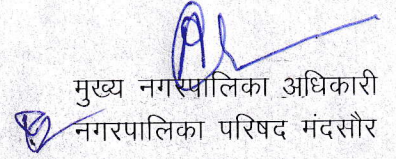 मुख्य नगरपालिका अधिकारी
नगरपालिका परिषद मंदसौर